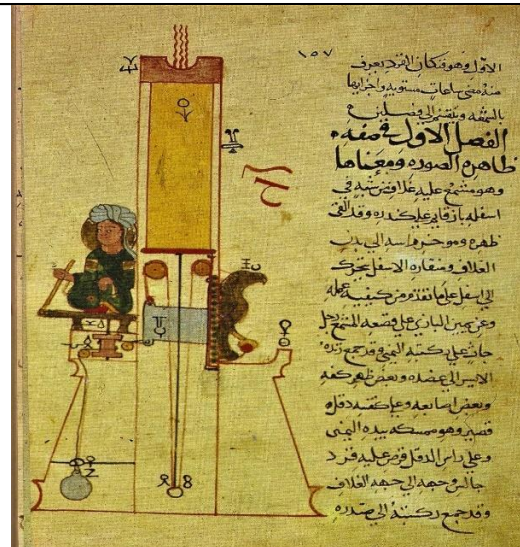 ١٥٧
الاول وهو فنكان القرد يعرف
منه مضى ساعات مستويه واجزايها
بالشمعه وينقسم الى فصلين
الفصل الاول فى صفه
ظاهره الصوره ومعناها
وهو مشمع عليه غلاف من شبه فى
اسفله باز قايم على كندره وقد القى
ظهره وموخر راسه الى بدن
الغلاف ومنقاره الاسفل يتحرك
الى اسفل على ما تقدم من كيفيه عمله
وعن يمين البازى على قصعه المشمع رجل
جاث على ركبته اليمنى وقد جمع زنده
الايسر الى عضده وبعض ظهر كفه
وبعض اصابعه وعلى كتفه دقل
قصير وهو ممسكه بيده اليمنى
وعلى راس الدقل قرص عليه قرد
جالس وجهه الى جهه الغلاف
وقد جمع ركبتيه الى صدره